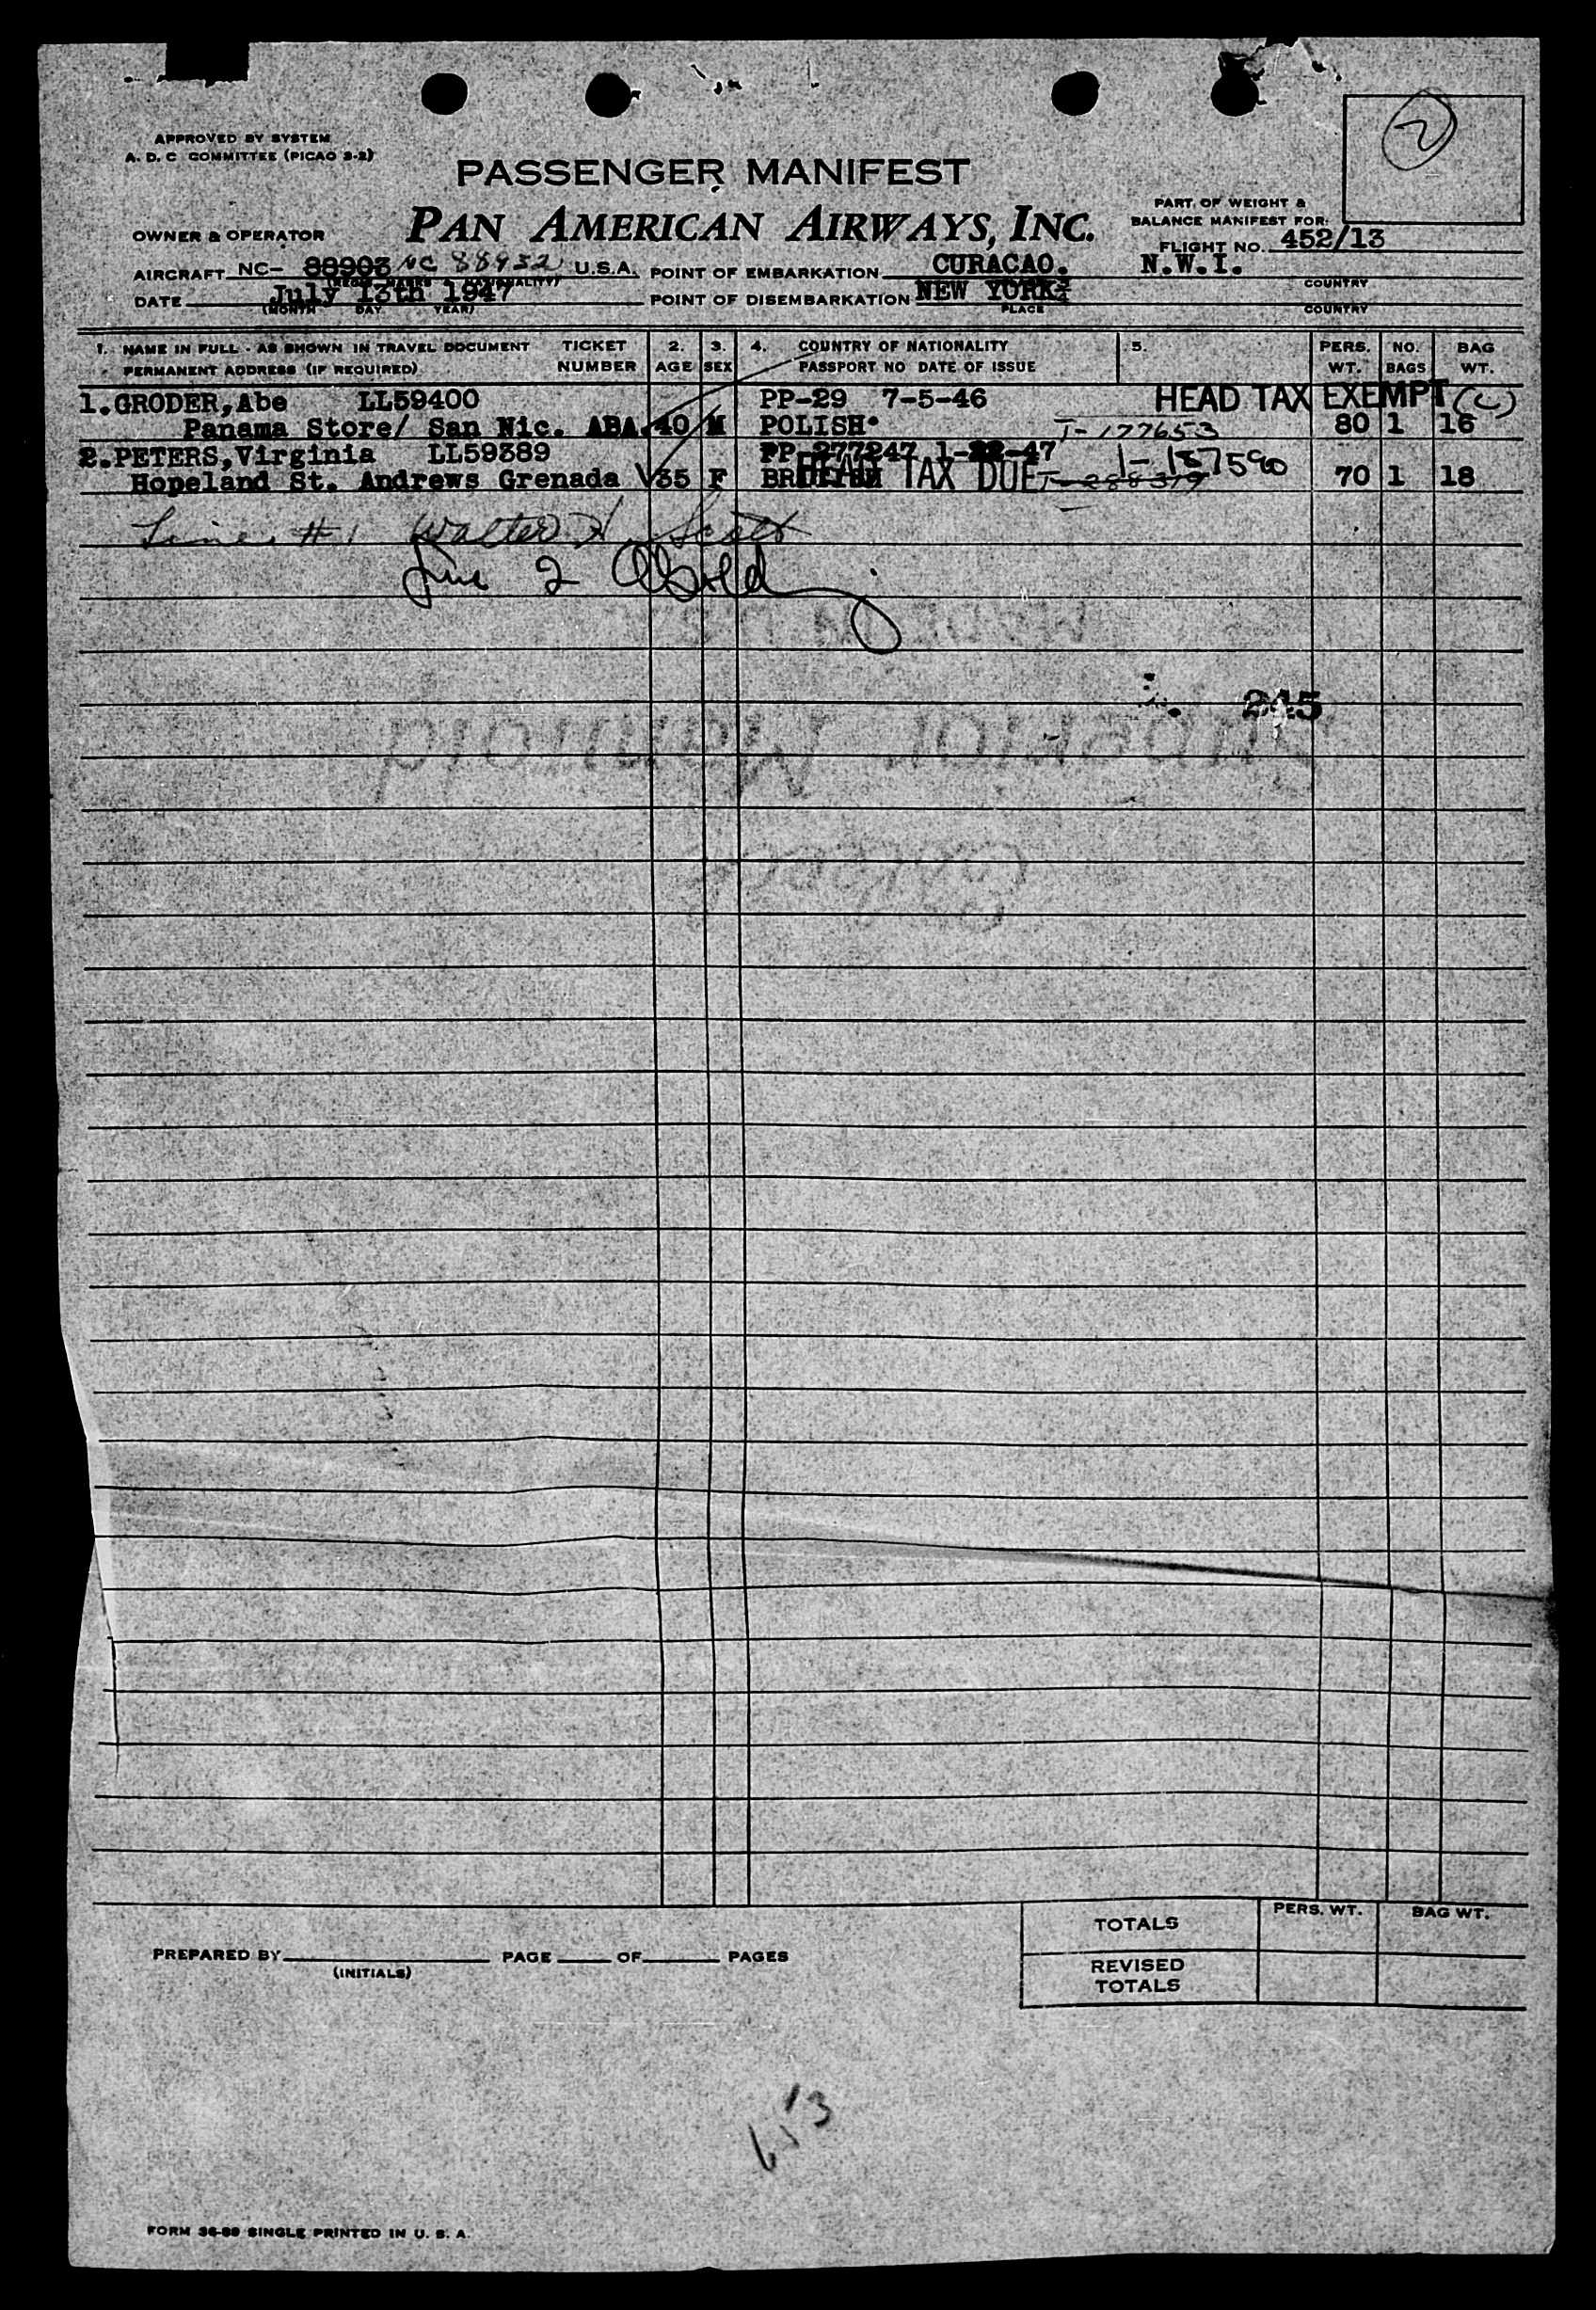 2
APPROVED BY SYSTEM
A. D. C COMMITTEE (PICAO 3-2)
PASSENGER MANIFEST
PAN AMERICAN AIRWAYS, INC.
PART OF WEIGHT &
BALANCE MANIFEST FOR:
OWNER & OPERATOR
FLIGHT NO. 452/13
AIRCRAFT NC- 88903 NC 88932 U.S.A. POINT OF EMBARKATION CURACAO. N.W.I.
COUNTRY
DATE July 13th 1947 POINT OF DISEMBARKATION NEW YORK
(MONTH DAY YEAR) PLACE COUNTRY
1. NAME IN FULL - AS SHOWN IN TRAVEL DOCUMENT TICKET 2. 3. 4. COUNTRY OF NATIONALITY 5. PERS. NO. BAG
PERMANENT ADDRESS (IF REQUIRED) NUMBER AGE SEX PASSPORT NO DATE OF ISSUE WT. BAGS WT.
1.GRODER,Abe LL59400 PP-29 7-5-46 HEAD TAX EXEMPT (C)
Panama Store/ San Nic. ABA. 40 M POLISH. T-177653 80 1 16
2.PETERS,Virginia LL59389 PP 277247 1-22-47 1-187590
Hopeland St. Andrews Grenada 35 F BRITISH HEAD TAX DUE T-288379 70 1 18
Line #1 Walter H. Scott
Line 2
245
TOTALS PERS. WT. BAG WT.
PREPARED BY PAGE OF PAGES
(INITIALS)
REVISED
TOTALS
FORM 36-69 SINGLE PRINTED IN U. S. A.